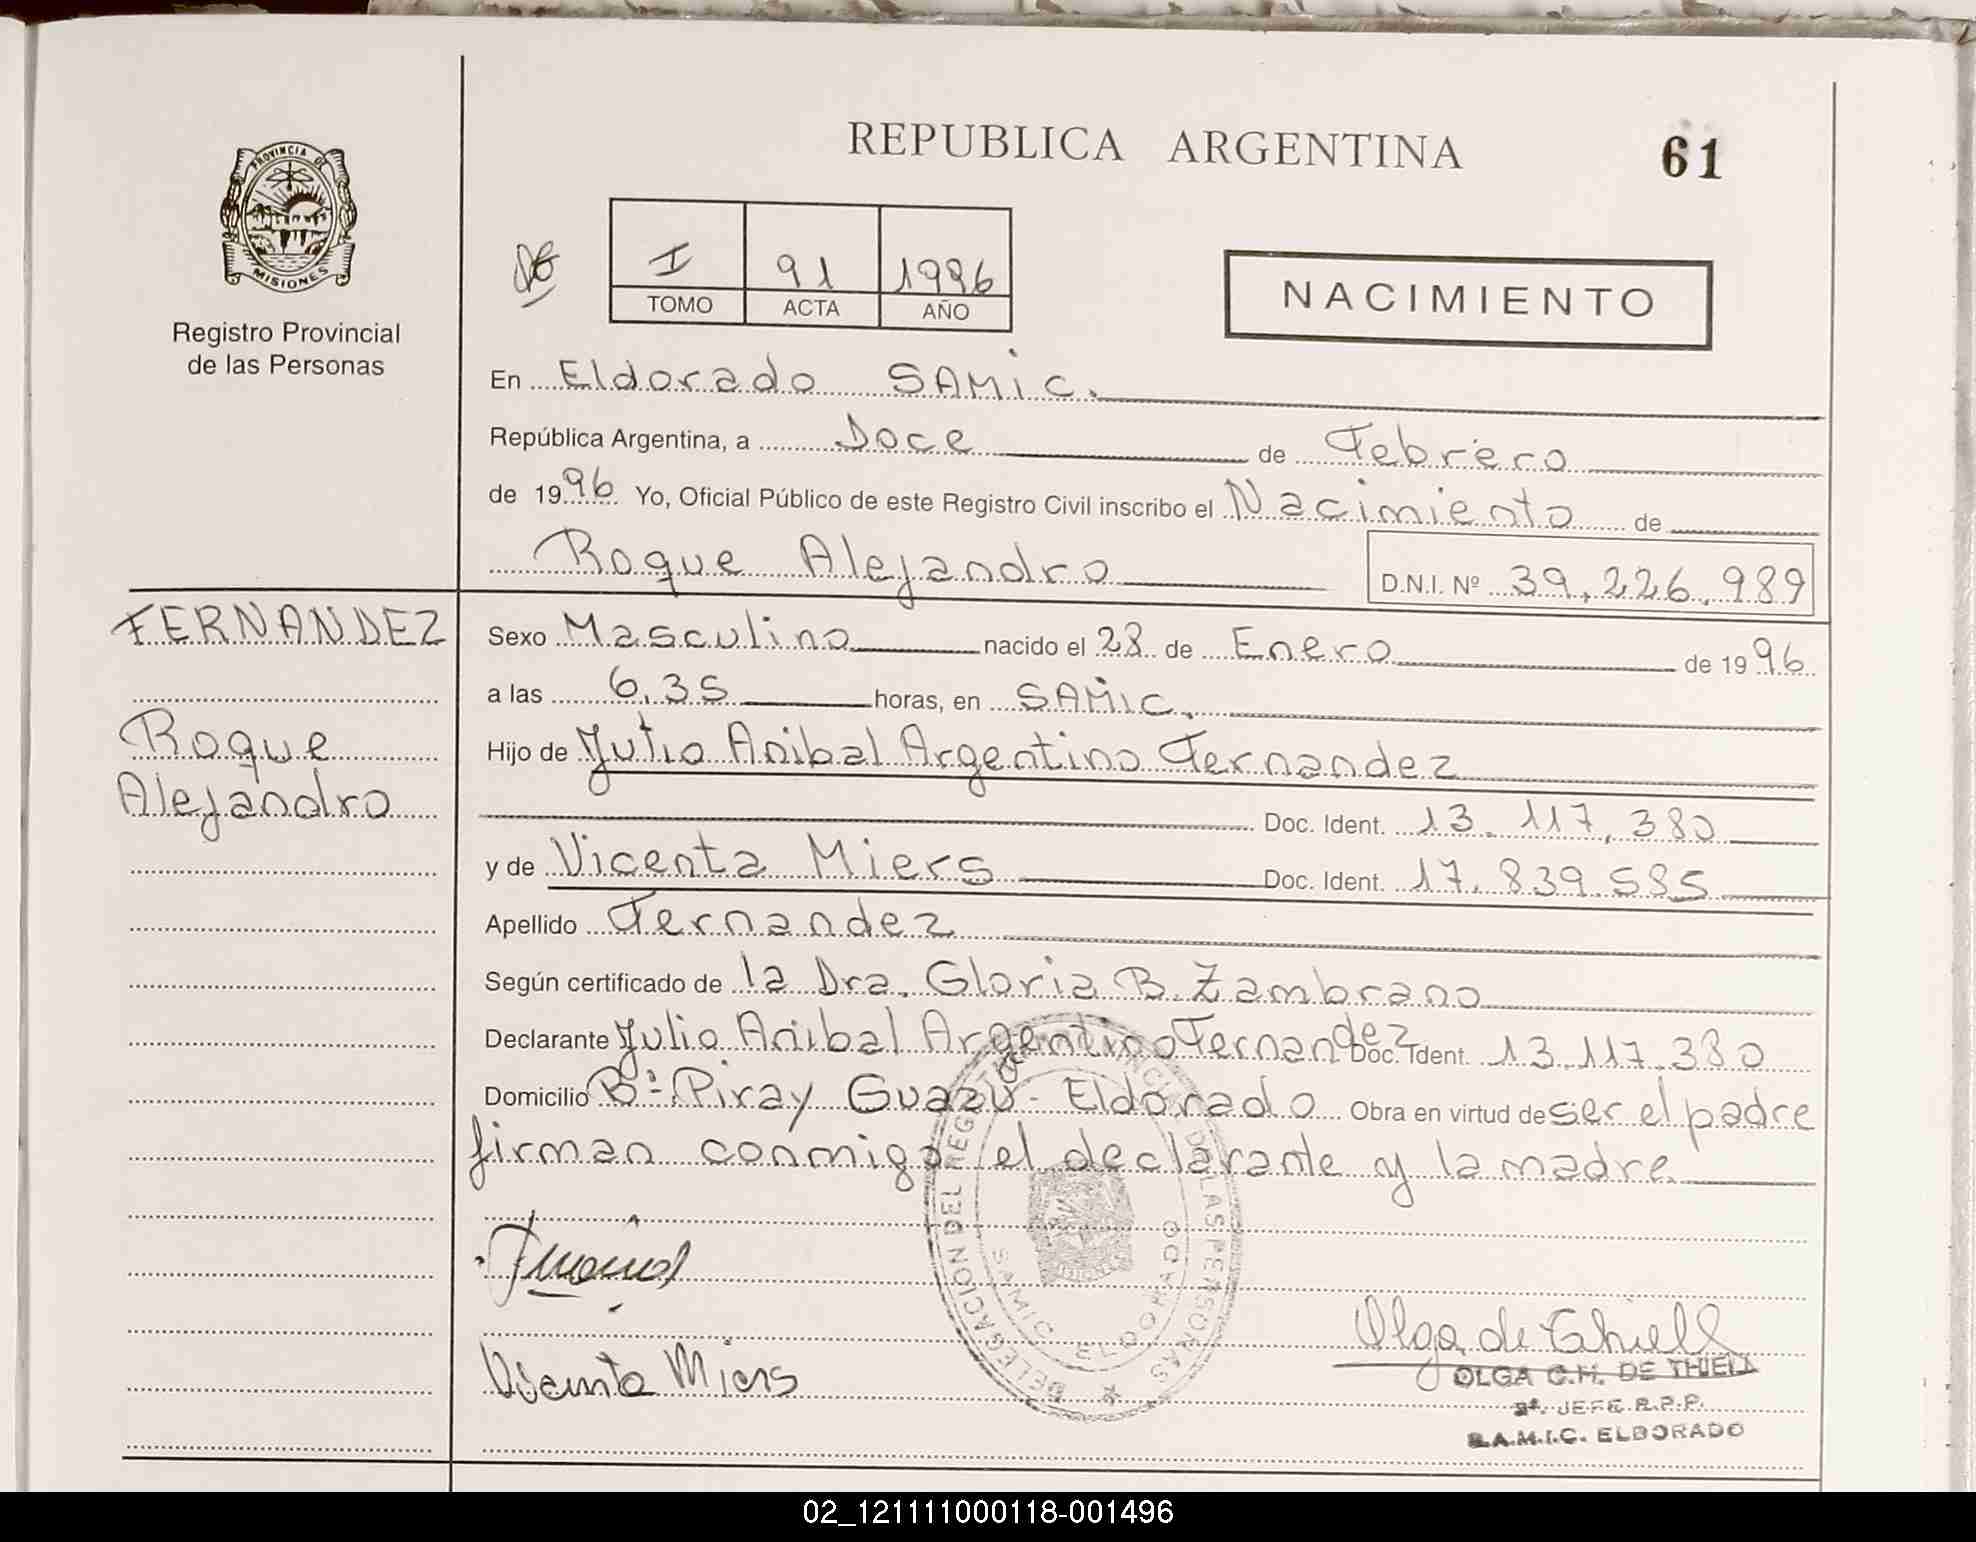 REPUBLICA ARGENTINA
61
PROVINCIA DE
MISIONES
Registro Provincial
de las Personas
I 91 1996
TOMO ACTA AÑO
NACIMIENTO
En Eldorado SAMIC.
República Argentina, a Doce de Febrero
de 1996 Yo, Oficial Público de este Registro Civil inscribo el Nacimiento de
Roque Alejandro D.N.I. Nº 39,226,989
FERNANDEZ
Roque
Alejandro
Sexo Masculino nacido el 28 de Enero de 1996
a las 6,35 horas, en SAMIC.
Hijo de Julio Anibal Argentino Fernandez
Doc. Ident. 13.117,380
y de Vicenta Miers Doc. Ident. 17.839.585
Apellido Fernandez
Según certificado de la Dra. Gloria B. Zambrano
Declarante Julio Anibal Argentino Fernandez Doc. Ident. 13.117.380
Domicilio Bº: Piray Guazú - Eldorado Obra en virtud de ser el padre
firman conmigo el declarante y la madre.
DELEGACION DEL REGISTRO PROVINCIAL DE LAS PERSONAS
SAMIC ELDORADO
Vicenta Miers
Olga de Thiell
OLGA C.H. DE THIELL
2ª. JEFE R.P.P.
S.A.M.I.C. ELDORADO
02_121111000118-001496